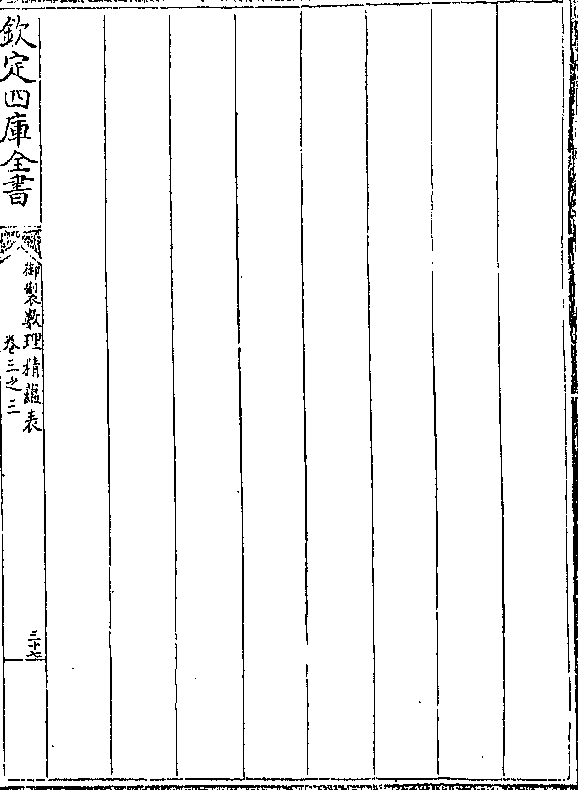 欽定四庫全書
御製數理精蘊表
卷三之三
三十六